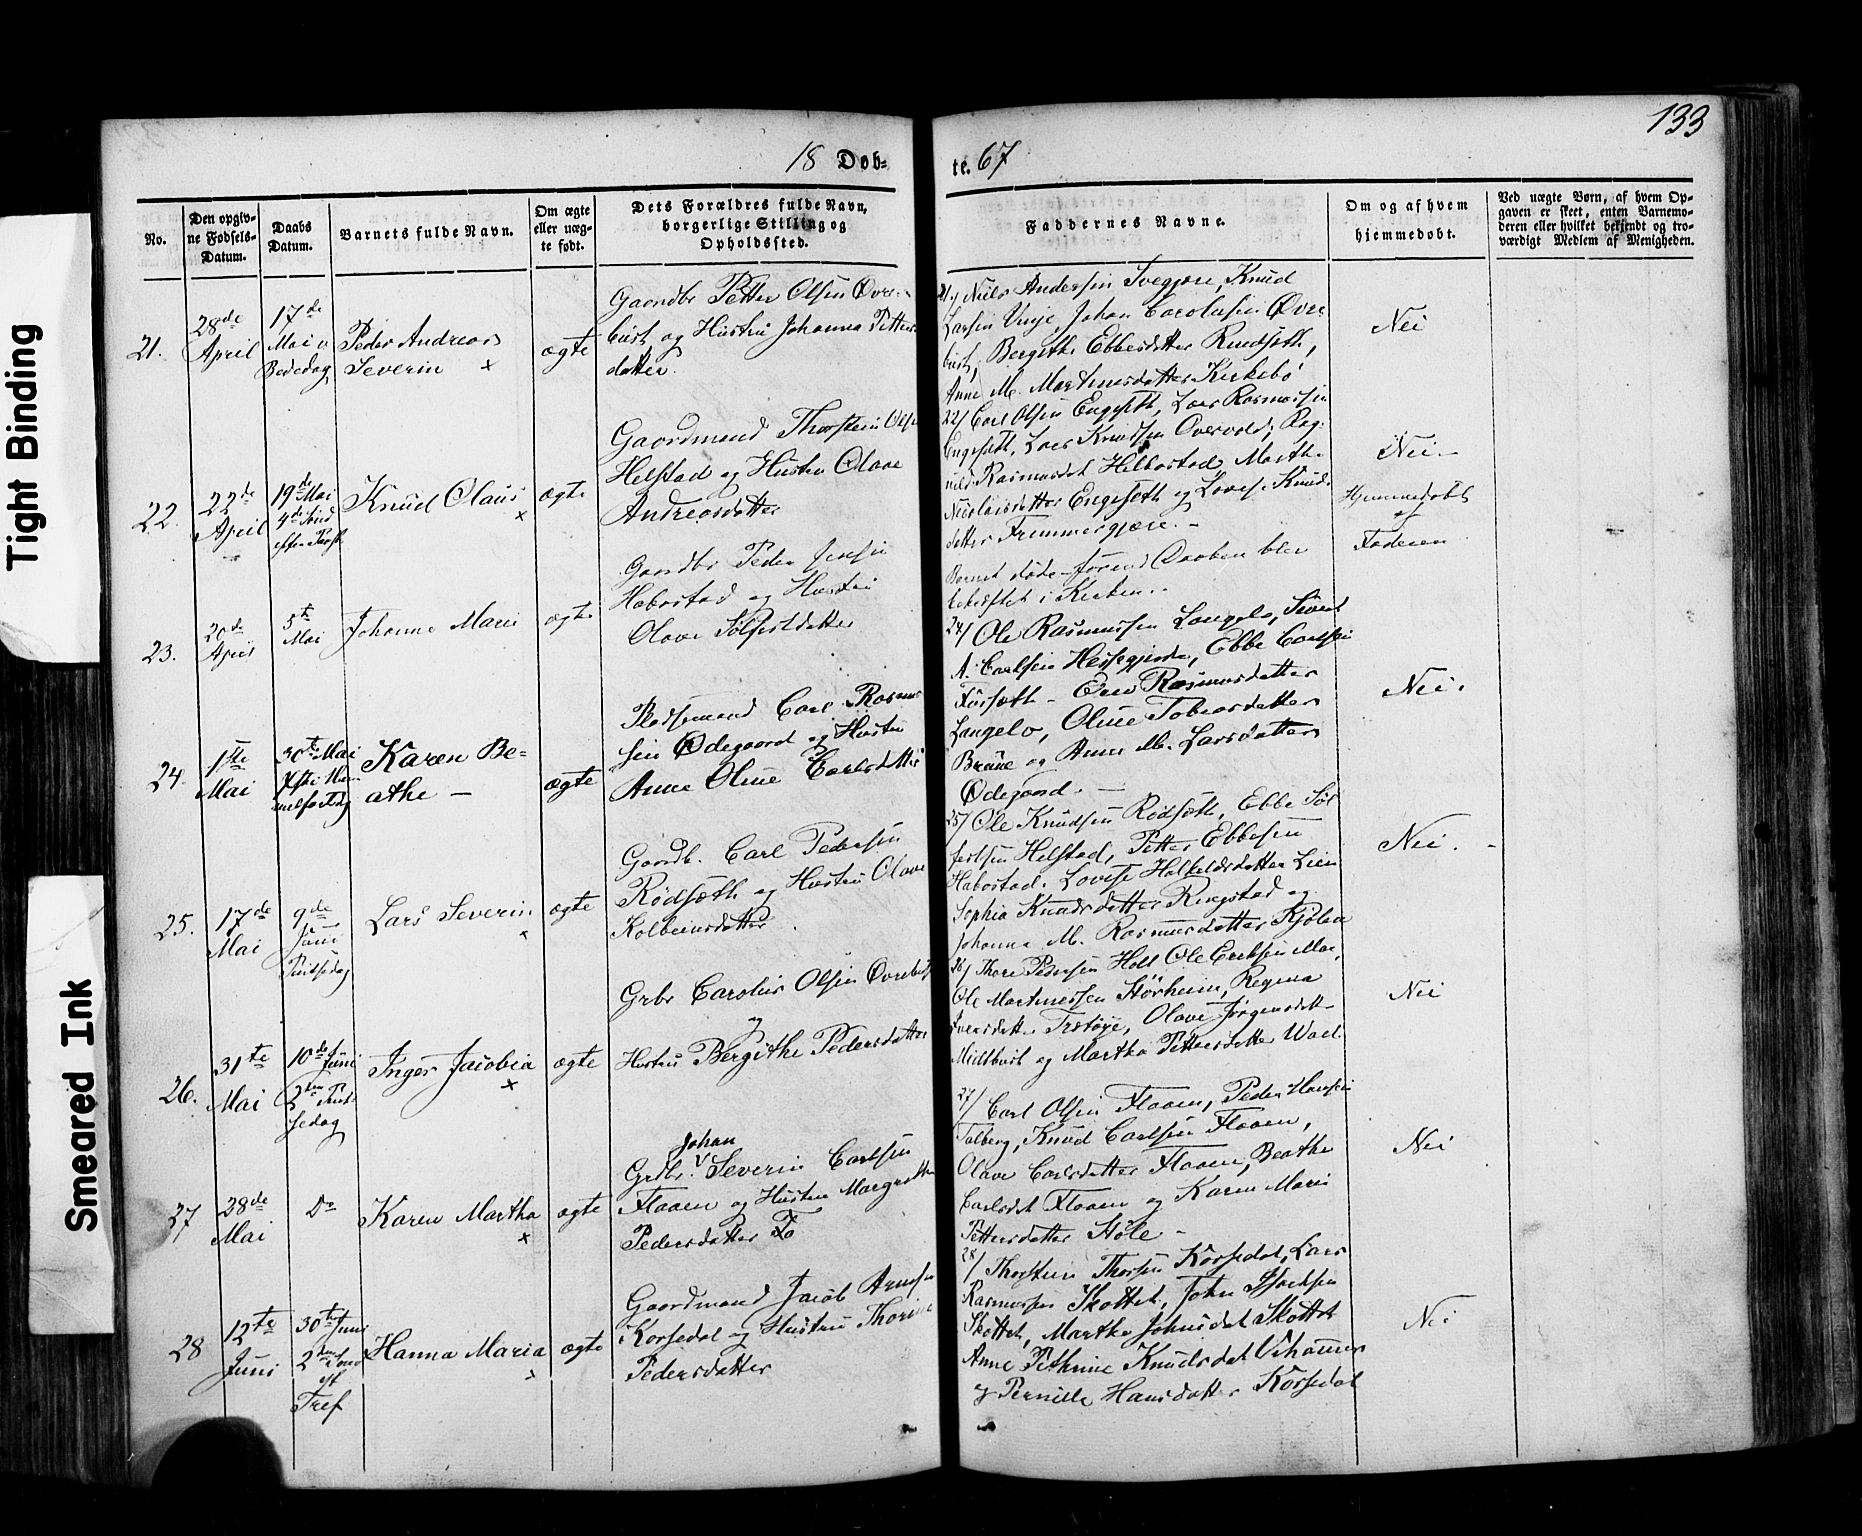 133
18 Døb=
te. 67
No.
Den opgiv=
ne Fødsels=
Datum.
Daabs
Datum.
Barnets fulde Navn.
Om ægte
eller uæg=
te født.
Dets Forældres fulde Navn,
borgerlige Stilling og
Opholdssted.
Faddernes Navne.
Om og af hvem
hjemmedøbt.
Ved uægte Børn, af hvem Op=
gaven er skeet, enten Barnemo=
deren eller hvilket bekjendt og tro=
værdigt Medlem af Menigheden.
21.
28de
April
17de
Mai
Bededag
Peder Andreas
Severin ×
ægte
Gaardbr Petter Olsen Øvre-
bust og Hustru Johanna Petters
datter.
21/ Niels Andersen Svegjære, Knud
Larsen Vinje, Johan Carolusen Øvre
bust, Bergithe Ebbesdatter Rindsæth,
Anne M. Martinusdatter Kirkebø
Nei
22.
22de
April
19de Mai
4de Sønd
efter Paask
Knud Olaus
×
ægte
Gaardmand Thorstein Olsen
Helstad og Hustru Olave
Andreasdatter
22/ Carl Olsen Engesæth, Lars Rasmussen
Engesæth, Lars Knudsen Overvold, Rag-
nild Rasmusdat Helbostad, Marth-
Nicolaisdatter Engesæth og Lovise Knuds
datter Fremmergjære. -
Nei -
23.
20de
April
5te
Mai
Johanne Marie
ægte
Gaardbr Peder Jensen
Habostad og Hustru
Olave Sølfestdatter
Barnet døde førend Daaben blev
bekræftet i Kirken. -
Hjemmedøbt
af
Faderen
24.
1ste
Mai
30te Mai
Karen Be-
athe -
ægte
Pladsemand Carl Rasmus
sen Ødegaard og Hustru
Anne Oline Carlsdatter
24/ Ole Rasmussen Langelo, Sivert
A. Carlsen Hessegjerde, Ebbe Carlsen
Rasmusdatter
Langelo, Oline Tobiasdatter
Brune og Anne M. Larsdatter
Ødegaard. -
Nei.
25.
17de
Mai
9de
Juni
Pintsedag
Lars Severin
×
ægte
Gaardb. Carl Pedersen
Rødsæth og Hustru Olave
Kolbeinsdatter
25/ Ole Knudsen Rødsæth, Ebbe Søl
festsen Helstad, Petter Ebbesen
Habostad. Lovise Halkeldsdatter Lien
Sophia Knudsdatter Ringstad og
Johanna M. Rasmusdatter Kjølaa
Nei. -
26.
31te
Mai
10de Juni
2den Pint-
sedag
Inger Jacobia
×
ægte
Grbr Carolius Olsen Øvrebust
og
Hustru Bergithe Pedersdatter
26/ Thore Pedersen Hole Ole Eriksen Moe,
Ole Martinussen Størheim, Regina
Iversdatt. Olave Jørgensdatt-
Midtbust og Martha Pettersdatter Wad.
Nei
27
28de
Mai
Do
Karen Martha
×
ægte
Johan
Grdbr. V Severin Carlsen
Flaaen og Hustru Margrethe
Pedersdatter
27/ Carl Olsen Flaaen, Peder Hansen
Talberg, Knud Carlsen Flaaen,
Olave Carlsdatter Flaaen, Beathe
Carlsdat Flaaen og Karen Marie
Pettersdatter Hole -
Nei
28
12te
Juni
30te Juni
2den Sønd
ef
Tref
Hanna Maria
×
ægte
Gaardmand Jacob Arnesen
Korsedal og Hustru Thorine
Pedersdatter
28/ Thorstein Thorsen Korsedal, Lars
Rasmussen Skottet, John
Skottet, Martha Johnsdat Skottet
Anne Pethrine Knudsdat
og Pernille Hansdatter Korsedal
Nei
Tight Binding
Smeared Ink